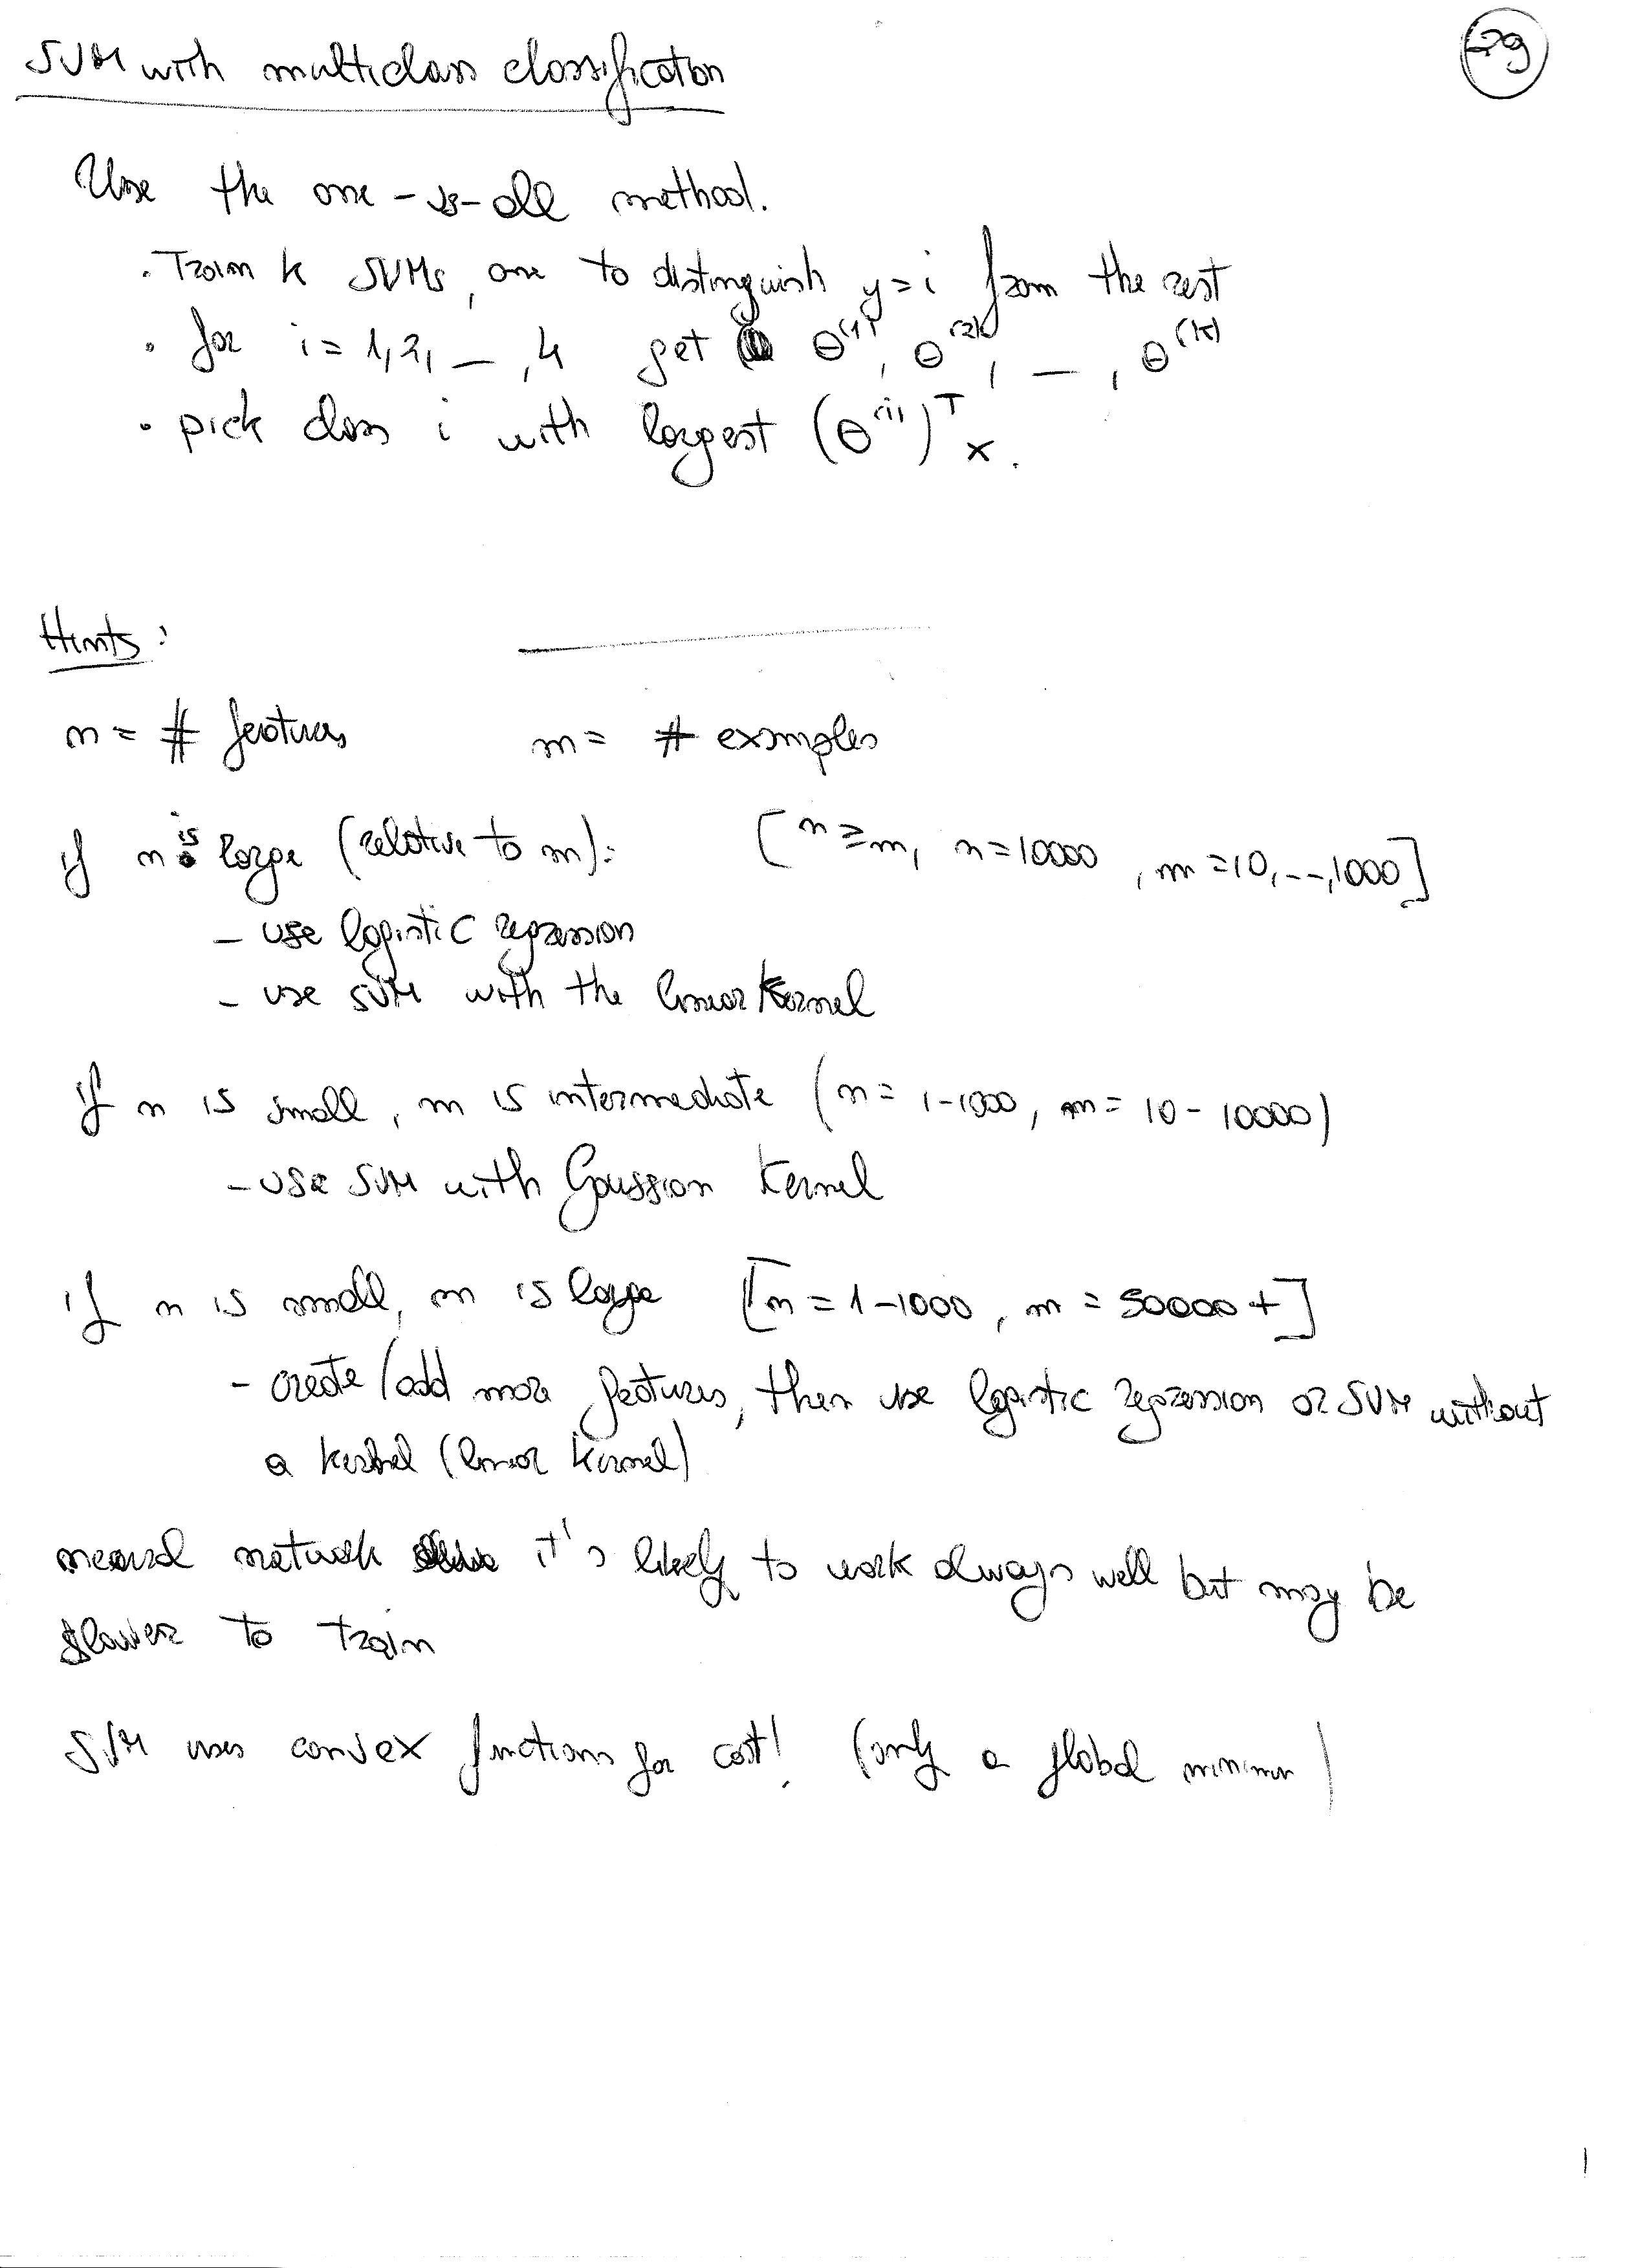 SVM with multiclass classification
29
Use the one-vs-all method.
• Train k SVMs, one to distinguish y=i from the rest
• for i = 1,2, — , k get θ^(1), θ^(2), — , θ^(k)
• pick class i with largest (θ^(i))^T x.
Hints:
n = # features m = # examples
if n is large (relative to m): [n ≥ m, n = 10000, m = 10, --, 1000]
- use logistic regression
- use SVM with the linear kernel
if n is small, m is intermediate (n = 1-1000, m = 10 - 10000)
- use SVM with Gaussian kernel
if n is small, m is large [n = 1-1000, m = 50000+]
- create/add more features, then use logistic regression or SVM without
a kernel (linear kernel)
neural network it's likely to work always well but may be
slower to train
SVM uses convex functions for cost! (only a global minimum)